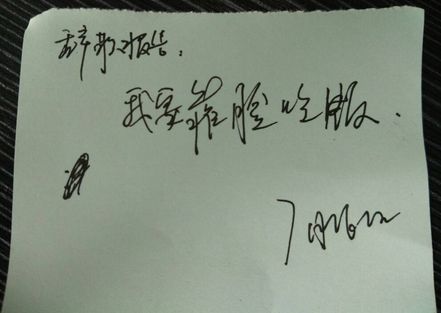 辞职报告:
我要靠脸吃饭.